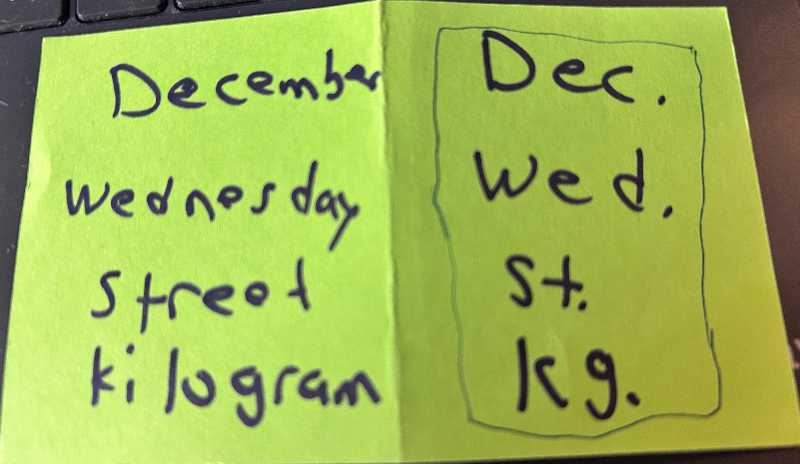 December Dec.
Wednesday Wed.
street st.
kilogram kg.